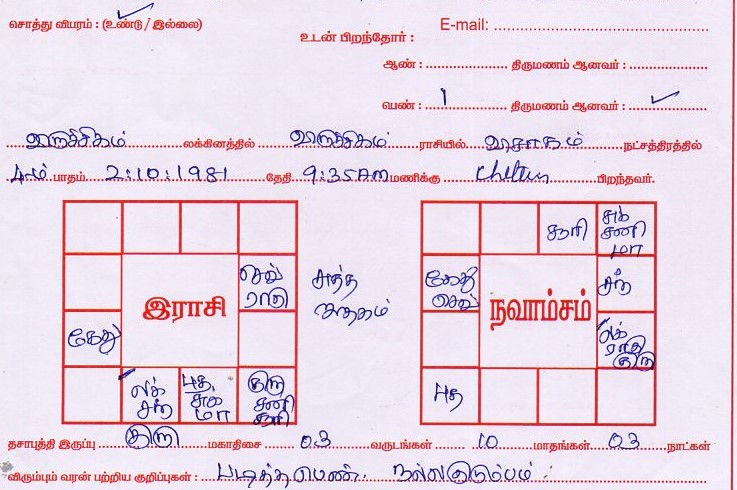 சொத்து விபரம் : (உண்டு / இல்லை)
E-mail:
உடன் பிறந்தோர் :
ஆண் : திருமணம் ஆனவர் :
பெண் : 1 திருமணம் ஆனவர் :
விருச்சிகம் லக்கினத்தில் விருச்சிகம் ராசியில் விசாகம் நட்சத்திரத்தில்
4-ம் பாதம் 2:10:1981 தேதி 9:35 AM மணிக்கு பிறந்தவர்.
சூரி
சுக்
சனி
மா
செவ்
ராகு
சுத்த
ஜாதகம்
கேது
செவ்
சந்
இராசி
நவாம்சம்
கேது
லக்
ராகு
குரு
லக்
சந்
புத,
சுக்
மா
குரு
சனி
சூரி
புத
தசாபுத்தி இருப்பு குரு மகாதிசை 03 வருடங்கள் 10 மாதங்கள் 03 நாட்கள்
விரும்பும் வரன் பற்றிய குறிப்புகள் : படித்த பெண். நல்ல குடும்பம்.